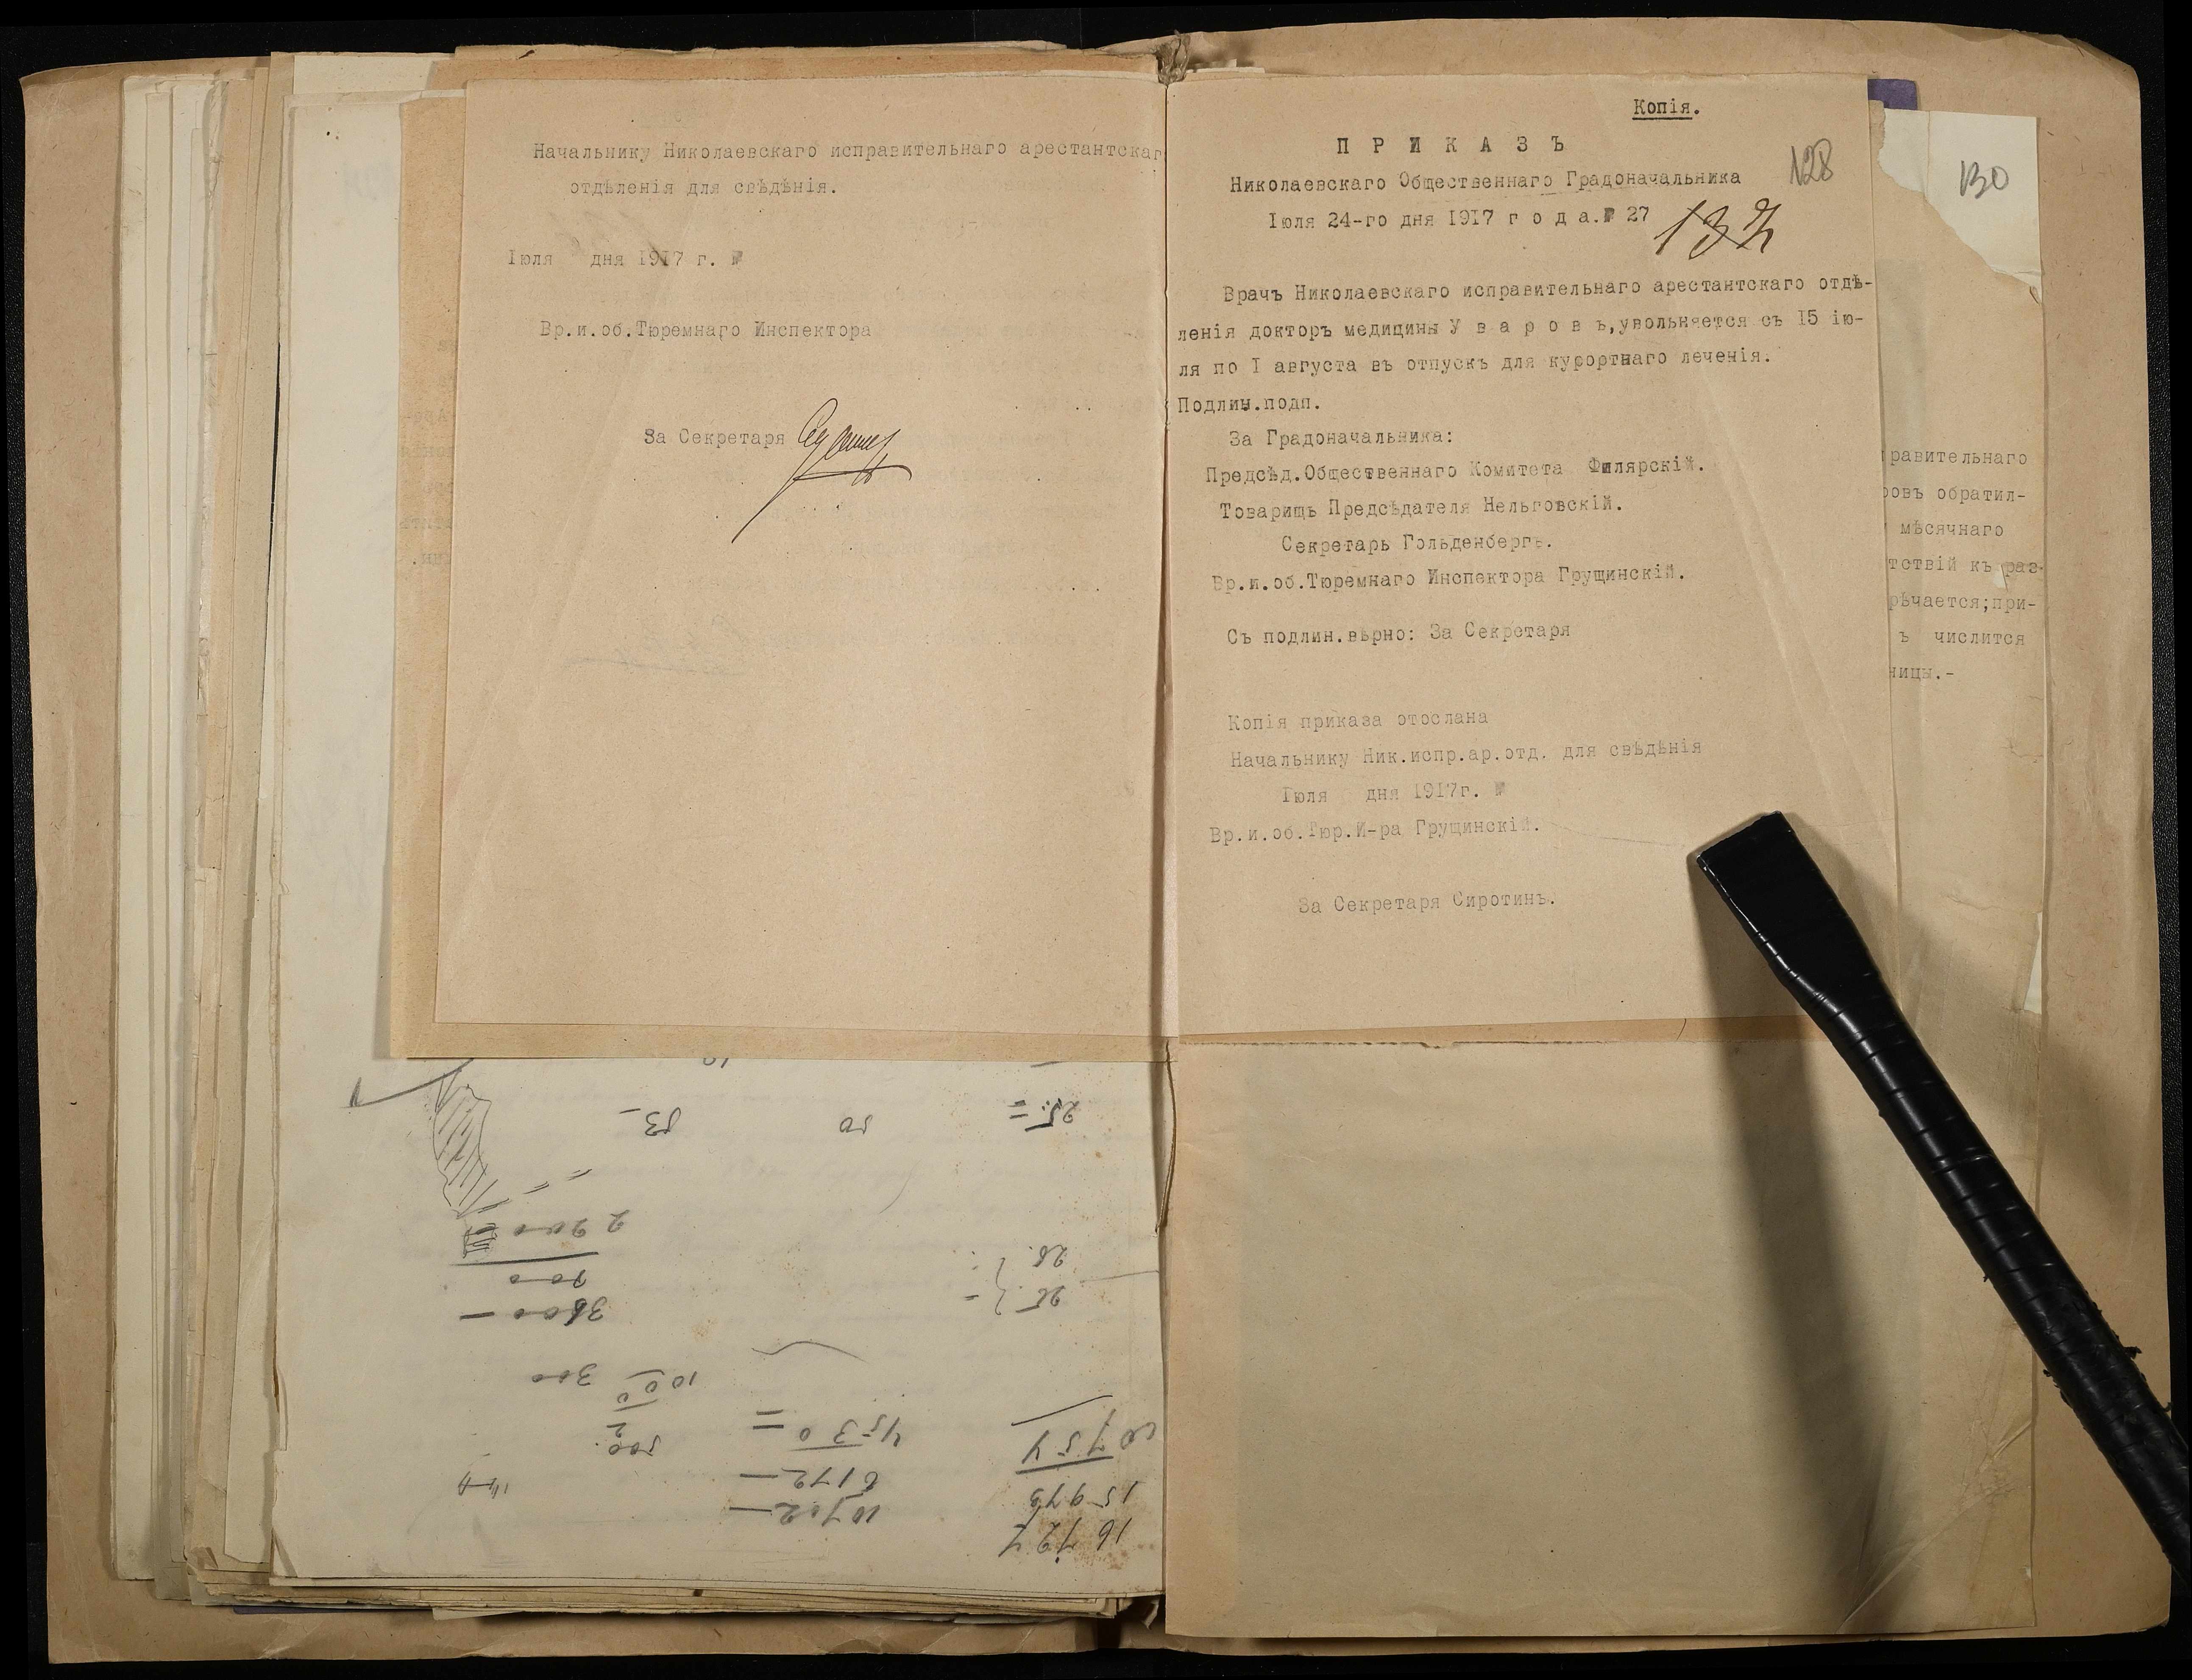 Начальнику Николаевскаго исправительнаго арестантскаг
отдѣленія для свѣдѣнія.
Іюля дня 1917 г. №
Вр.и.об.Тюремнаго Инспектора
За Секретаря
Копія.
П Р И К А З Ъ
128
Николаевскаго Общественнаго Градоначальника
Іюля 24-го дня 1917 г о д а.№ 27
132
Врачъ Николаевскаго исправительнаго арестантскаго отдѣ-
ленія докторъ медицины У в а р о в ъ,увольняется съ 15 ію-
ля по I августа въ отпускъ для курортнаго леченія.
Подлин.подп.
За Градоначальника:
Предсѣд.Общественнаго Комитета Филярскій.
Товарищъ Предсѣдателя Нельговскій.
Секретарь Гольденбергъ.
Вр.и.об.Тюремнаго Инспектора Грущинскій.
Съ подлин.вѣрно: За Секретаря
Копія приказа отослана
Начальнику Ник.испр.ар.отд. для свѣдѣнія
Іюля дня 1917г. №
Вр.и.об.Тюр.И-ра Грущинскій.
За Секретаря Сиротинъ.
130
равительнаго
овъ обратил-
мѣсячнаго
тствій къ раз-
рѣчается;при-
ъ числится
ницы.-
25.=
50
53-
2900
28.
25
3600 -
300
1000
500.
4530 =
6172 -
10702 -
15973
16727